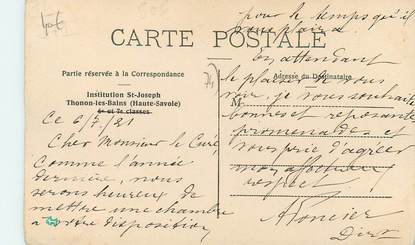 40€
CARTE POSTALE
Partie réservée à la Correspondance
Adresse du Destinataire
Institution St-Joseph
Thonon-les-Bains (Haute-Savoie)
6e et 7e classes.
74
M
Ce 6/7/21
Cher Monsieur le Curé,
Comme l'année
dernière, nous
serons heureux de
mettre une chambre
à votre disposition
pour le temps qu'il
vous plaira
En attendant
le plaisir de vous
voir, je vous souhaite
bonnes et reposantes
promenades et
vous prie d'agréer
mon affectueux
respect
Dirr